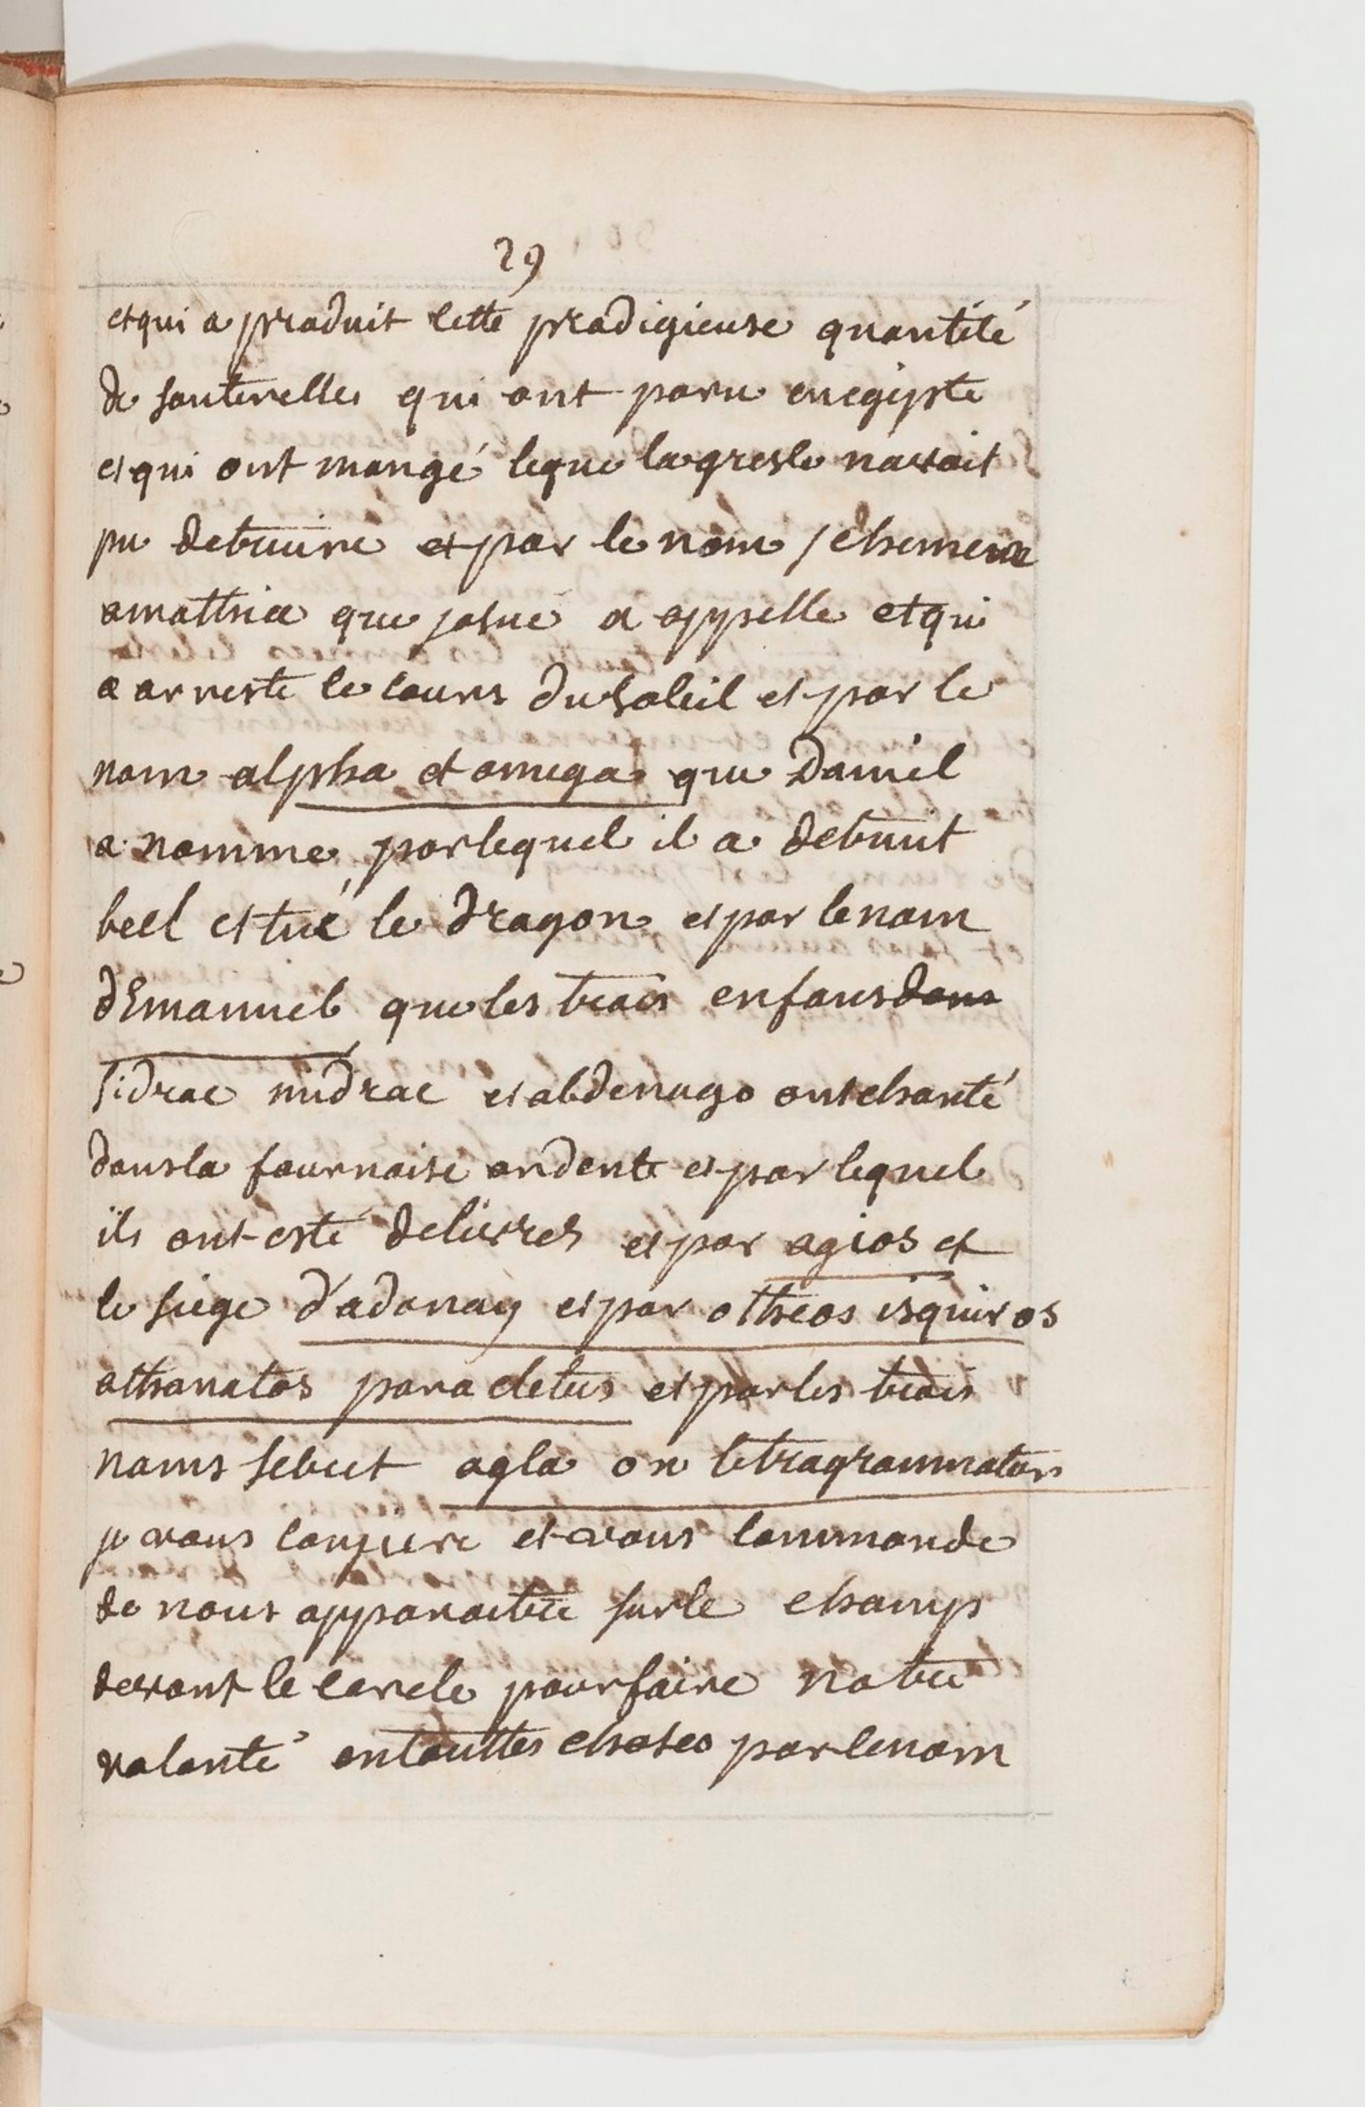 29
et qui a produit cette prodigieuse quantité
de sauterelles qui ont paru en egipte
et qui ont mangé ceque la gresle navoit
pu detruire et par le nom schemes
amathia que josué a appelle et qui
a arresté le cours du soleil et par le
nom alpha et omega que Daniel
a nomme par lequel il a detruit
beel et tué le dragon et par le nom
d'Emanuel que les trois enfans dans
sidrac midrac et abdenago ont chanté
dans la fournaise ardente et par lequel
ils ont esté delivres et par agios et
le siege d'adonay et par otheos isquiros
athanatos paracletus et par les trois
noms secret agla on tetragrammaton
je vous conjure et vous commande
de nous apparoitre sur le champ
devant le cercle pour faire notre
volonté en touttes choses par le nom